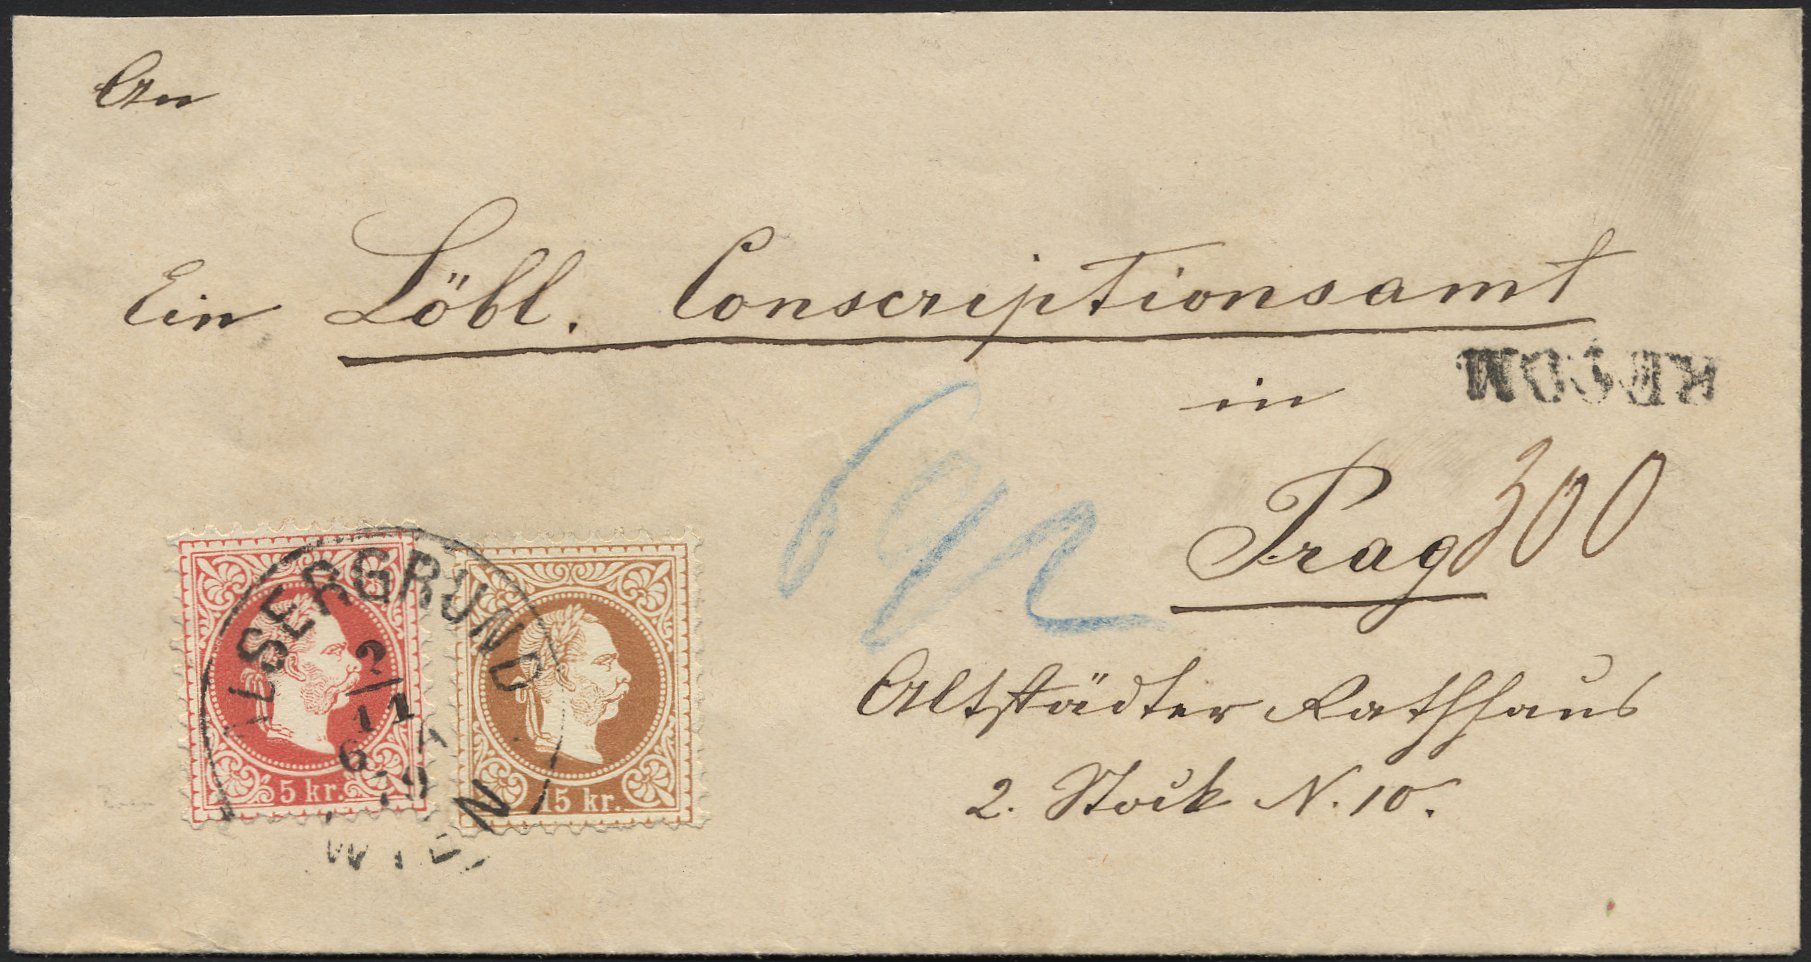 An
Ein Löbl. Conscriptionsamt
RECOM
in
Prag 300
Altstädter Rathhaus
2. Stock N. 10.
ALSERGRUND
2/11
6 A
79
WIEN
5 kr.
15 kr.